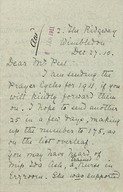 2, The Ridgway
Wimbledon
Dec. 27. 10.
Dear Mr Peet
I am sending the
Prayer Cycles for 1911, if you
will kindly forward them
on. I hope to send another
25 in a few days, making
up the number to 175, as
on the list overleaf.
You may have heard of
our loss, a nurse in
Erzeroom. She was supported